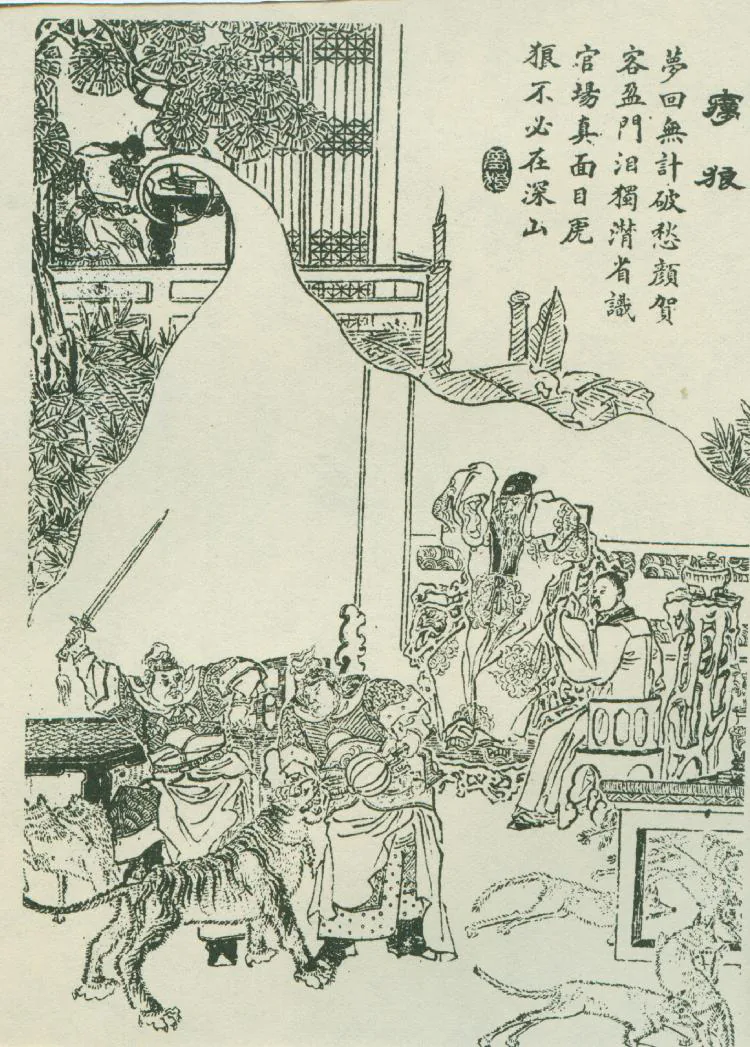 夢狼
夢回無計破愁顏賀
客盈門泪獨潸省識
官場真面目虎
狼不必在深山